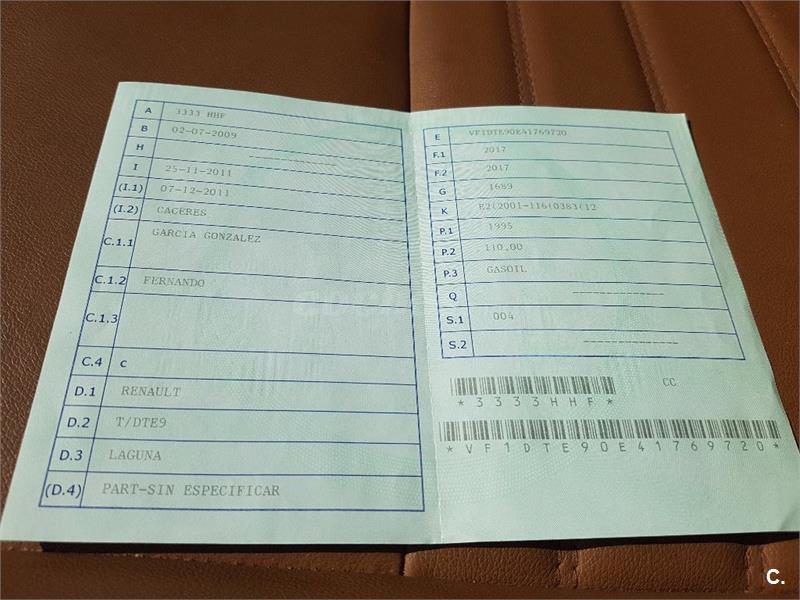 A 3333 HHF
B 02-07-2009
H ---------------
I 25-11-2011
(I.1) 07-12-2011
(I.2) CACERES
C.1.1 GARCIA GONZALEZ
C.1.2 FERNANDO
C.1.3
C.4 c
D.1 RENAULT
D.2 T/DTE9
D.3 LAGUNA
(D.4) PART-SIN ESPECIFICAR
E VF1DTE90E41769720
F.1 2017
F.2 2017
G 1689
K E2(2001-116(0383(12
P.1 1995
P.2 110,00
P.3 GASOIL
Q ---------------
S.1 004
S.2 ---------------
CC
*3333HHF*
*VF1DTE90E41769720*
C.